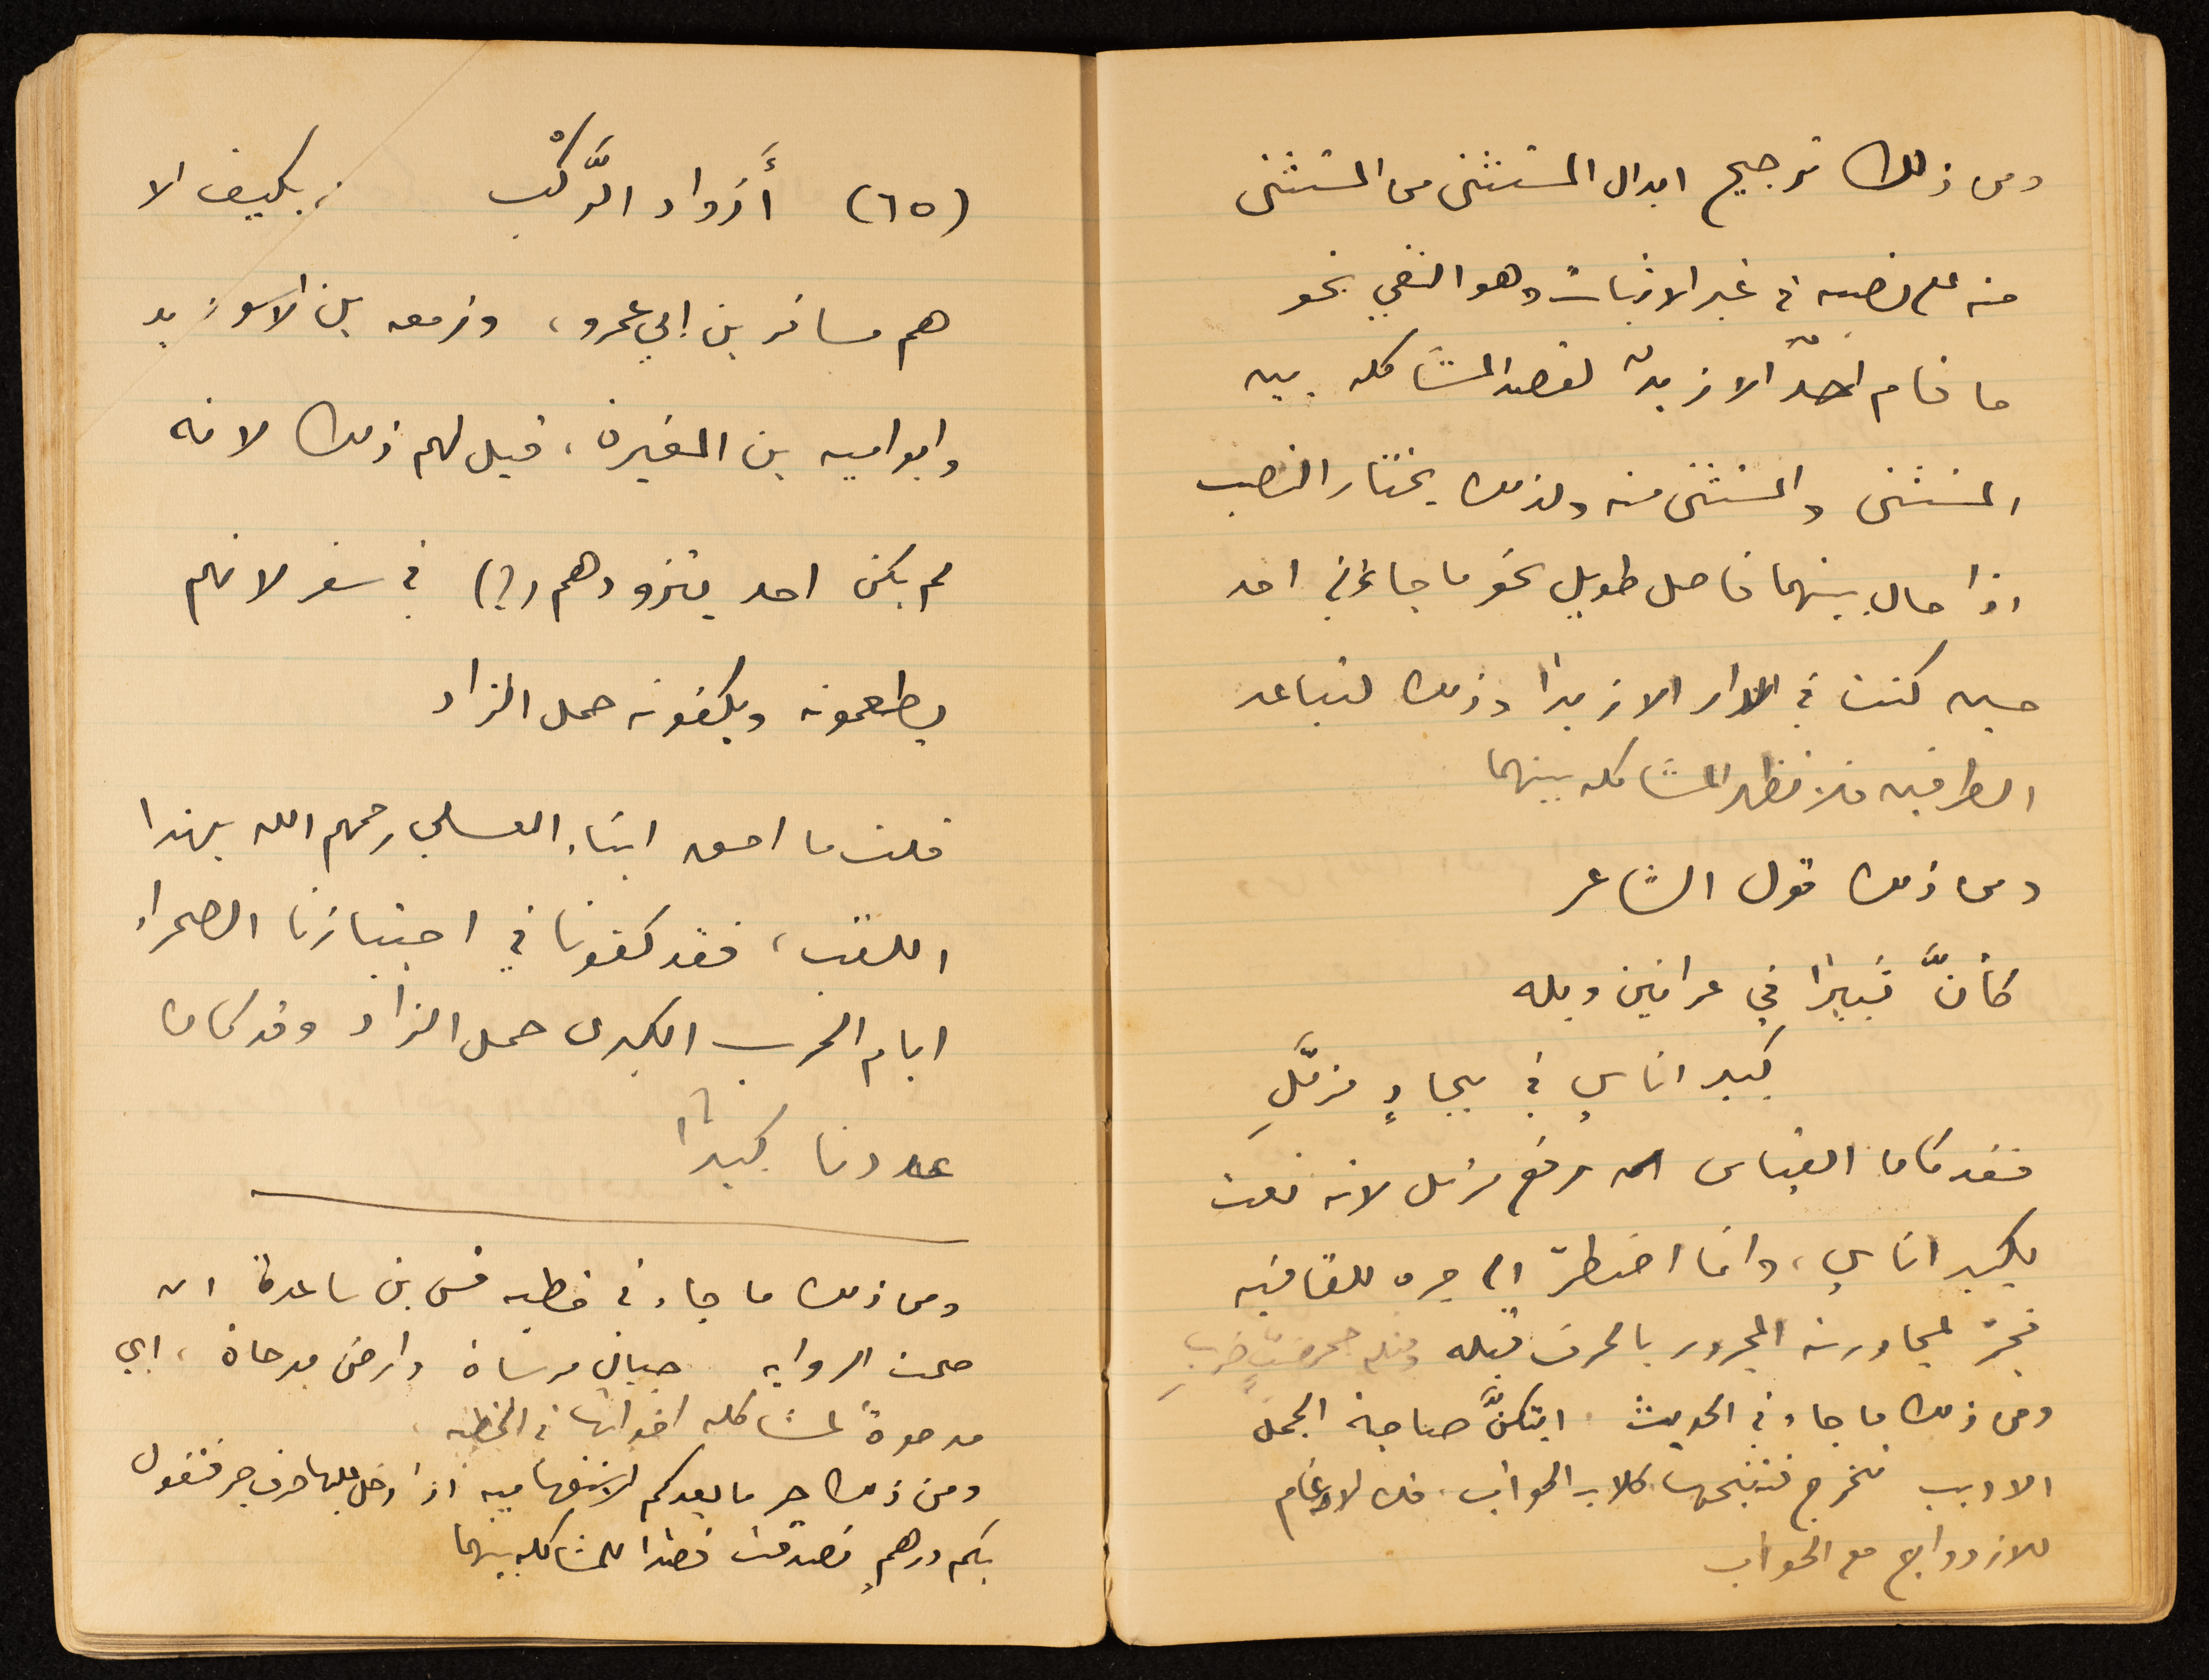 ومن ذلك ترجيح ابدال المستثنى من المستثنى
منه على نصبه في غير الاثبات وهو النفي نحو
ما قام احدٌ الا زيدٌ لقصد المشاكله بين
المستثنى والمستثنى منه ولذلك يختار النصب
اذا حال بينهما فاصل طويل نحو ما جاءني احد
حين كنت في الدار الا زيدا وذلك لتباعد
الطرفين فلا تظهر المشاكله بينهما
ومن ذلك قول الشاعر
كأنَّ ثبيرا في عرانين وبله
كبير اناسٍ في بجادٍ مزمَّلِ
فقد كان القياس رفع مزمل لانه نعت
لكبير اناسٍ، وانما اضطرّ الى جره للقافيه
فجرّ لمجاورته المجرور بالحرف قبله ومثله جحر ضبٍّ خربِ
ومن ذلك ما جاء في الحديث ايتكنَّ صاحبة الجمل
الادبب تخرج فتنبحها كلاب الحوأب. فك الادغام
للازدواج مع الحوأب
(٦٥) أَزواد الرَّكْب بكيف الا
هم مسافر بن ابي عمرو، وزمعه بن الاسود
وابو اميه بن المغيرة، قيل لهم ذلك لانه
لم يكن احد يتزودهم (؟) في سفر لانهم
يطعمونه ويكفونه حمل الزاد
قلت ما احق ابناء العسلي رحمهم الله بهذا
اللقب، فقد كفونا في اجتيازنا الصحراء
ايام الحرب الكبرى حمل الزاد وقد كان
عددنا كبيرا
ومن ذلك ما جاء في خطبه قس بن ساعدة ان
صحت الروايه جبال مرساة وارض مدحاة، اي
مدحوة لمشاكله اخواتها في الخطبه
ومن ذلك جر ما بعد كم الاستفهاميه اذا دخل عليها حرف جر فتقول
بكم درهمٍ تصدقت قصدا للمشاكله بينهما